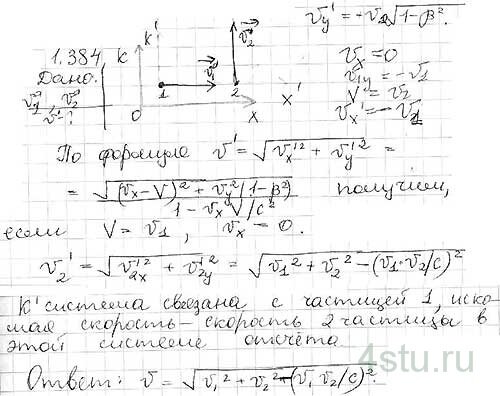 1.384
Дано:
v⃗₁, v⃗₂
v' - ?
K K'
v⃗₁ v⃗₂
1 2
0 x x'
v_y' = -v₂√(1-β²).
v_x = 0
v_1y = -v₁
V = v₂
v_x' = -v₁
По формуле v' = √(v_x'² + v_y'²) =
= √((v_x - V)² + v_y²(1-β²)) / (1 - v_x V/c²) получим,
если V = v₁, v_x = 0.
v₂' = √(v_2x'² + v_2y'²) = √(v₁² + v₂² - (v₁·v₂/c)²)
K' система связана с частицей 1, иско-
мая скорость - скорость 2 частицы в
этой системе отсчёта
4stu.ru
Ответ: v = √(v₁² + v₂² - (v₁ v₂/c)²).